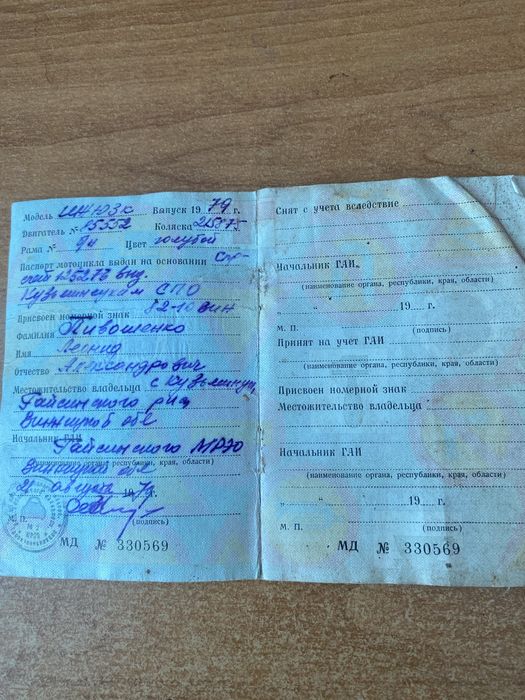 Модель ИЖЮ3к Выпуск 1979 г.
Двигатель № 15552 Коляска
Рама № дн Цвет голубой
Паспорт мотоцикла выдан на основании спр-
СПО
Присвоен номерной знак 82-10 вин
Фамилия Пивошенко
Имя Леонид
Отчество Александрович
Местожительство владельца с Кузьминцы
Гайсинского р-на
Винницкой обл
Начальник ГАИ Гайсинского МРЭО
Винницкой обл
(наименование органа, республики, края, области)
21 августа 1979
М. П. (подпись)
МД № 330569
Снят с учета вследствие
Начальник ГАИ
(наименование органа, республики, края, области)
" " 19 г.
М. П. (подпись)
Принят на учет ГАИ
(наименование органа, республики, края, области)
Присвоен номерной знак
Местожительство владельца
Начальник ГАИ
(наименование органа, республики, края, области)
" " 19 г.
М. П. (подпись)
МД № 330569